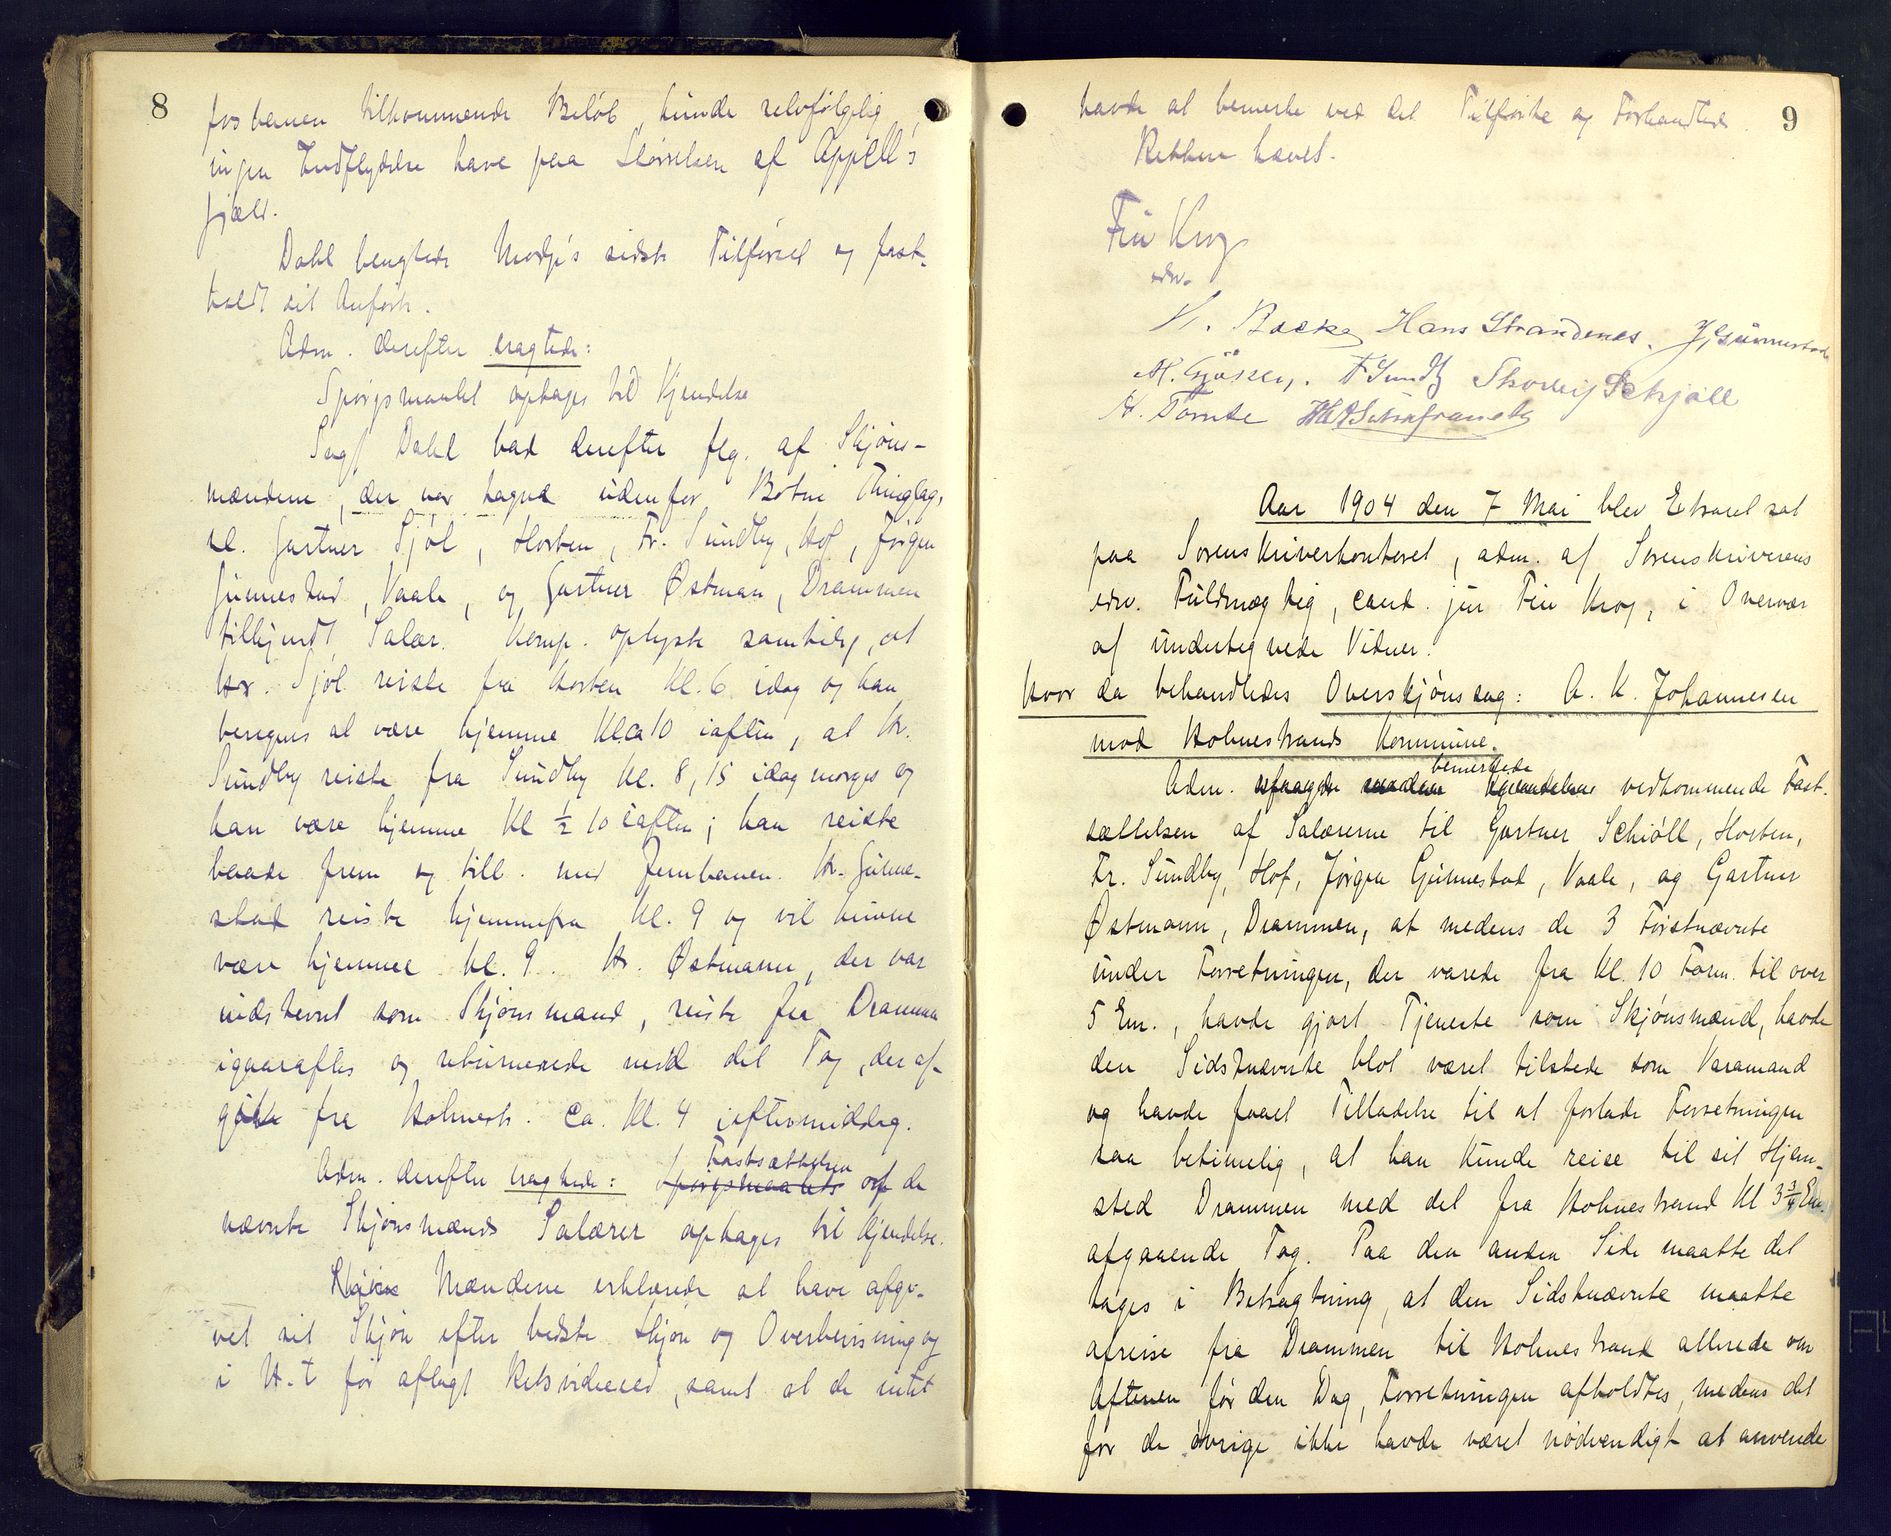 8
fosbernen tilkommende Beløb, kunde selvfølgelig
ingen Indflydelse have paa Størrelsen af Appell's
gjæld.
Dahl benegtede Modp's sidste Tilførsel og fast-
holdt sit Anførte.
Adm. derefter eragtede:
Spørgsmaalet optages til Kjendelse
Sagf Dahl bad derefter flg. af Skjøns-
mændene, der var tagne udenfor Botne Thinglag,
nl. Gartner Sjøl, Horten, Fr. Sundby, Hof, Jørgen
Gunnestad, Vaale, og Gartner Østman, Drammen
tilkjendt Salær. Komp. oplyste samtidig, at
Hr. Sjøl reiste fra Horten Kl. 6 idag og kan
beregnes at være hjemme Kl ca 10 iaften, at Hr.
Sundby reiste fra Sundby Kl. 8,15 idag morges og
kan være hjemme Kl ½ 10 iaften; han reiste
baade frem og tilb. med Jernbanen. Hr. Gunne-
stad reiste hjemmefra Kl. 9 og vil kunne
være hjemme Kl. 9. Hr. Østmann, der var
indstevnt som Skjønsmand, reiste fra Drammen
igaaraftes og returnerede med det Tog, der af-
gik fra Holmestr. ca. Kl. 4 ieftermiddag.
Adm. derefter eragtede: Spørgsmaalets Fastsættelsen af de
nævnte Skjønsmænds Salærer optages til Kjendelse.
Mændene erklærede at have afgi-
vet sit Skjøn efter bedste Skjøn og Overbevisning og
i H. t før aflagt Retsvidneed, samt at de intet
9
havde at bemerke ved det Tilførte og Forhandlede.
Retten hævet.
Fin Krog
edsv.
H. Backe Hans Strandenes. J. Gunnestad
F Sundby
H. Tømte
Aar 1904 den 7 Mai blev Extraret sat
paa Sorenskriverkontoret, adm. af Sorenskriverens
edsv. Fuldmægtig, cand. jur Fin Krog, i Overvær
af undertegnede Vidner.
Hvor da behandledes Overskjønssag: A. K. Johannesen
mod Holmestrands Kommune.
Adm. bemerkede vedkommende Fast-
sættelsen af Salærerne til Gartner Schiøll, Horten,
Fr. Sundby, Hof, Jørgen Gunnestad, Vaale, og Gartner
Østmann, Drammen, at medens de 3 Førstnævnte
under Forretningen, der varede fra Kl. 10 Form. til over
5 Em., havde gjort Tjeneste som Skjønsmænd, havde
den Sidstnævnte blot været tilstede som Varamand
og havde faaet Tilladelse til at forlade Forretningen
saa betimelig, at han kunde reise til sit Hjem-
sted Drammen med det fra Holmestrand Kl 3¾ Em.
afgaaende Tog. Paa den anden Side maatte det
tages i Betragtning, at den Sidstnævnte maatte
afreise fra Drammen til Holmestrand allerede om
Aftenen før den Dag, Forretningen afholdtes, medens det
for de øvrige ikke havde været nødvendigt at anvende